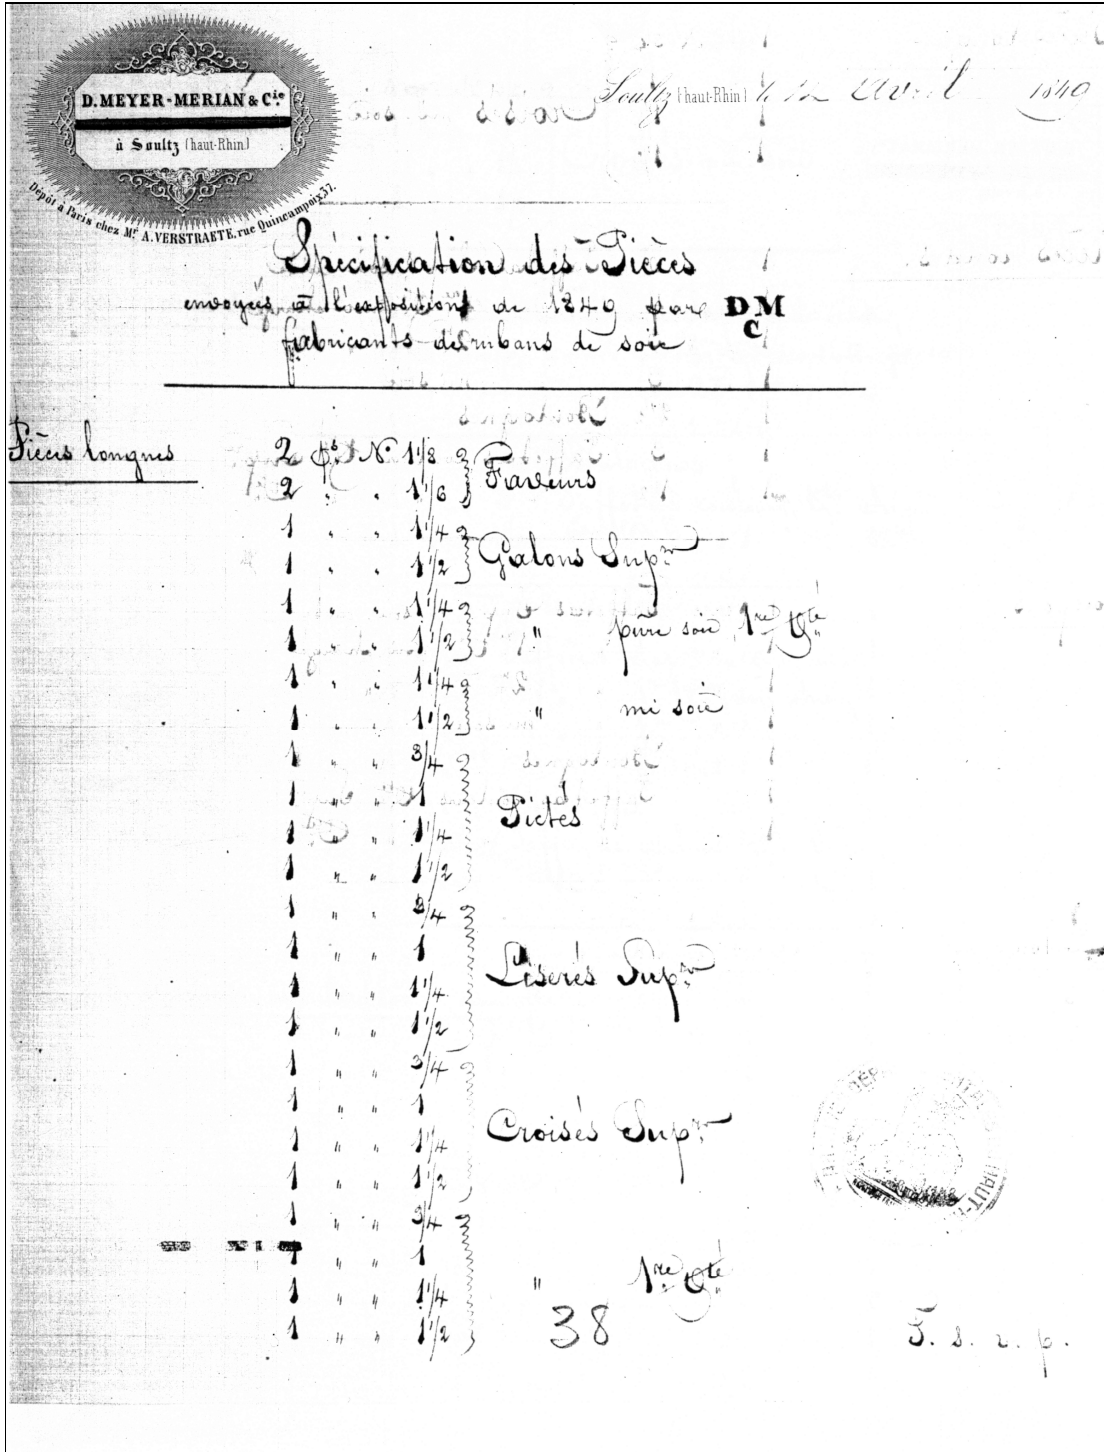 D. MEYER-MERIAN & Cie.
à Soultz (haut-Rhin)
Dépôt à Paris chez Mr. A. VERSTRAETE, rue Quincampoix 37.
Soultz (haut-Rhin) le 12 Avril 1849
Spécification des Pièces
envoyées à l'exposition de 1849 par DMC
fabricants de rubans de soie
Pièces longues 2 ps. No. 1 1/8 } Faveurs
2 " " 1 1/6
1 " " 1 1/4 } Galons Supr
1 " " 1 1/2
1 " " 1 1/4
1 " " 1 1/2 } " pure soie 1re Qté
1 " " 1 1/4
1 " " 1 1/2 } " mi soie
1 " " 3/4
1 " " 1 }
1 " " 1 1/4
1 " " 1 1/2
1 " " 3/4
1 " " 1 } Liserés Supr
1 " " 1 1/4
1 " " 1 1/2
1 " " 3/4
1 " " 1 } Croisés Supr
1 " " 1 1/4
1 " " 1 1/2
1 " " 3/4
1 " " 1
1 " " 1 1/4 } " 1re Qté
1 " " 1 1/2
38
T. s. v. p.